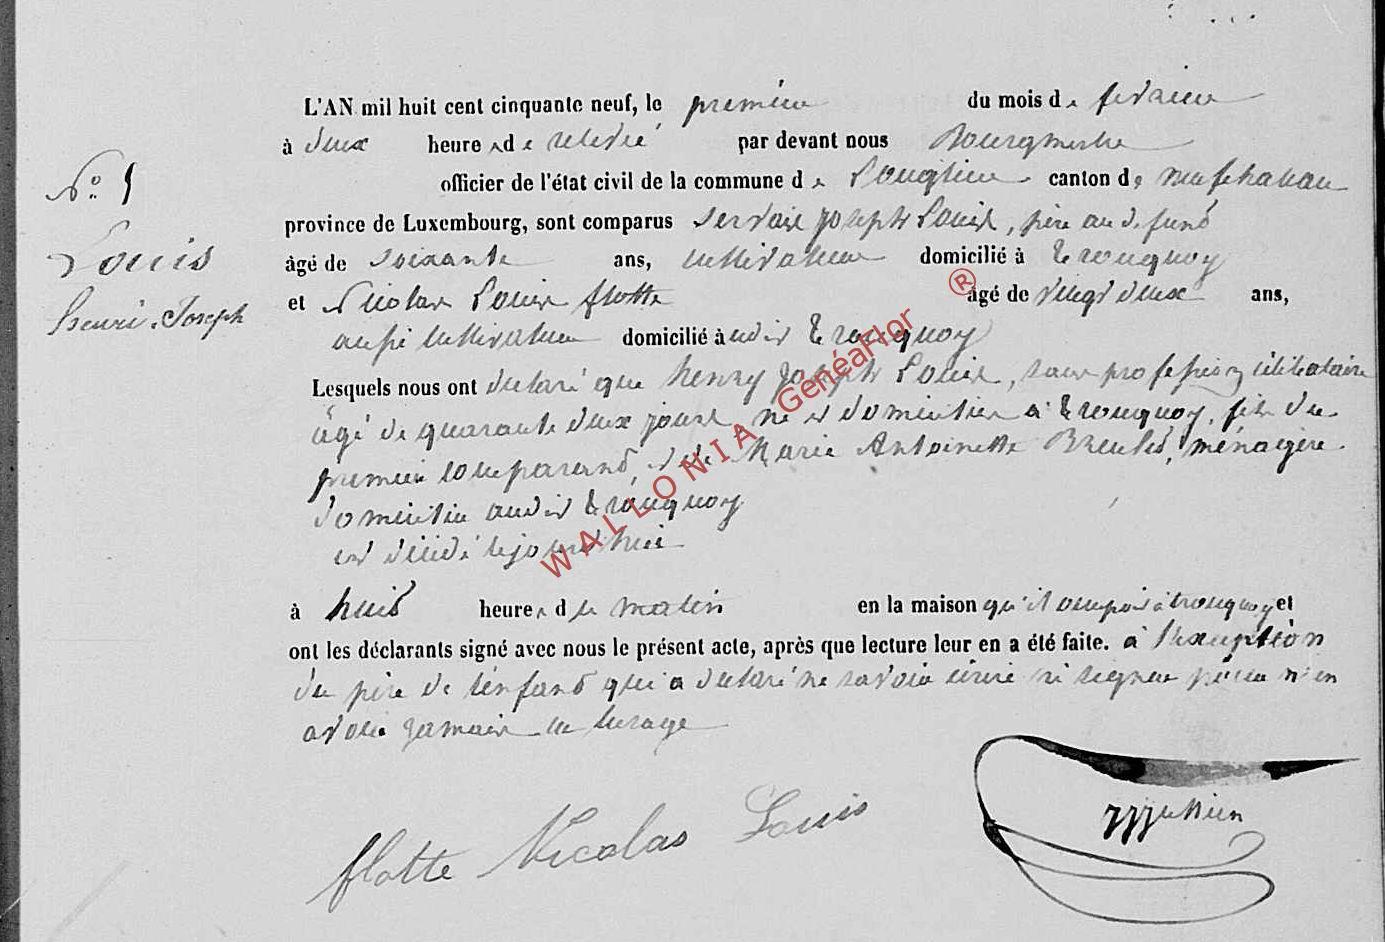 L'AN mil huit cent cinquante neuf, le premier du mois de fevrier
à deux heures de relevée par devant nous Bourgmestre
officier de l'état civil de la commune de Longlier canton de neufchateau
N° 5
province de Luxembourg, sont comparus Servais Joseph Louis, père au defunt
Louis
âgé de soixante ans, cultivateur domicilié à Tronquoy
Henri-Joseph
et Nicolas Louis flotte âgé de vingt deux ans,
aussi cultivateur domicilié à udit Tronquoy
Lesquels nous ont declaré que henry Joseph Louis, sans profession célibataire
agé de quarante deux jours, né et domicilié à Tronquoy, fils du
premier comparant et de Marie Antoinette, ménagère
domicilié audit Tronquoy
est décédé cejourd'hui
à huit heures du matin en la maison qu'il occupoit à tronquoy et
ont les déclarants signé avec nous le présent acte, après que lecture leur en a été faite. à l'exception
du père de l'enfant qui a declaré ne savoir écrire ni signer pour n'en
avoir jamais eu l'usage
flotte Nicolas Louis
WALLONIA GenéaFlor ®